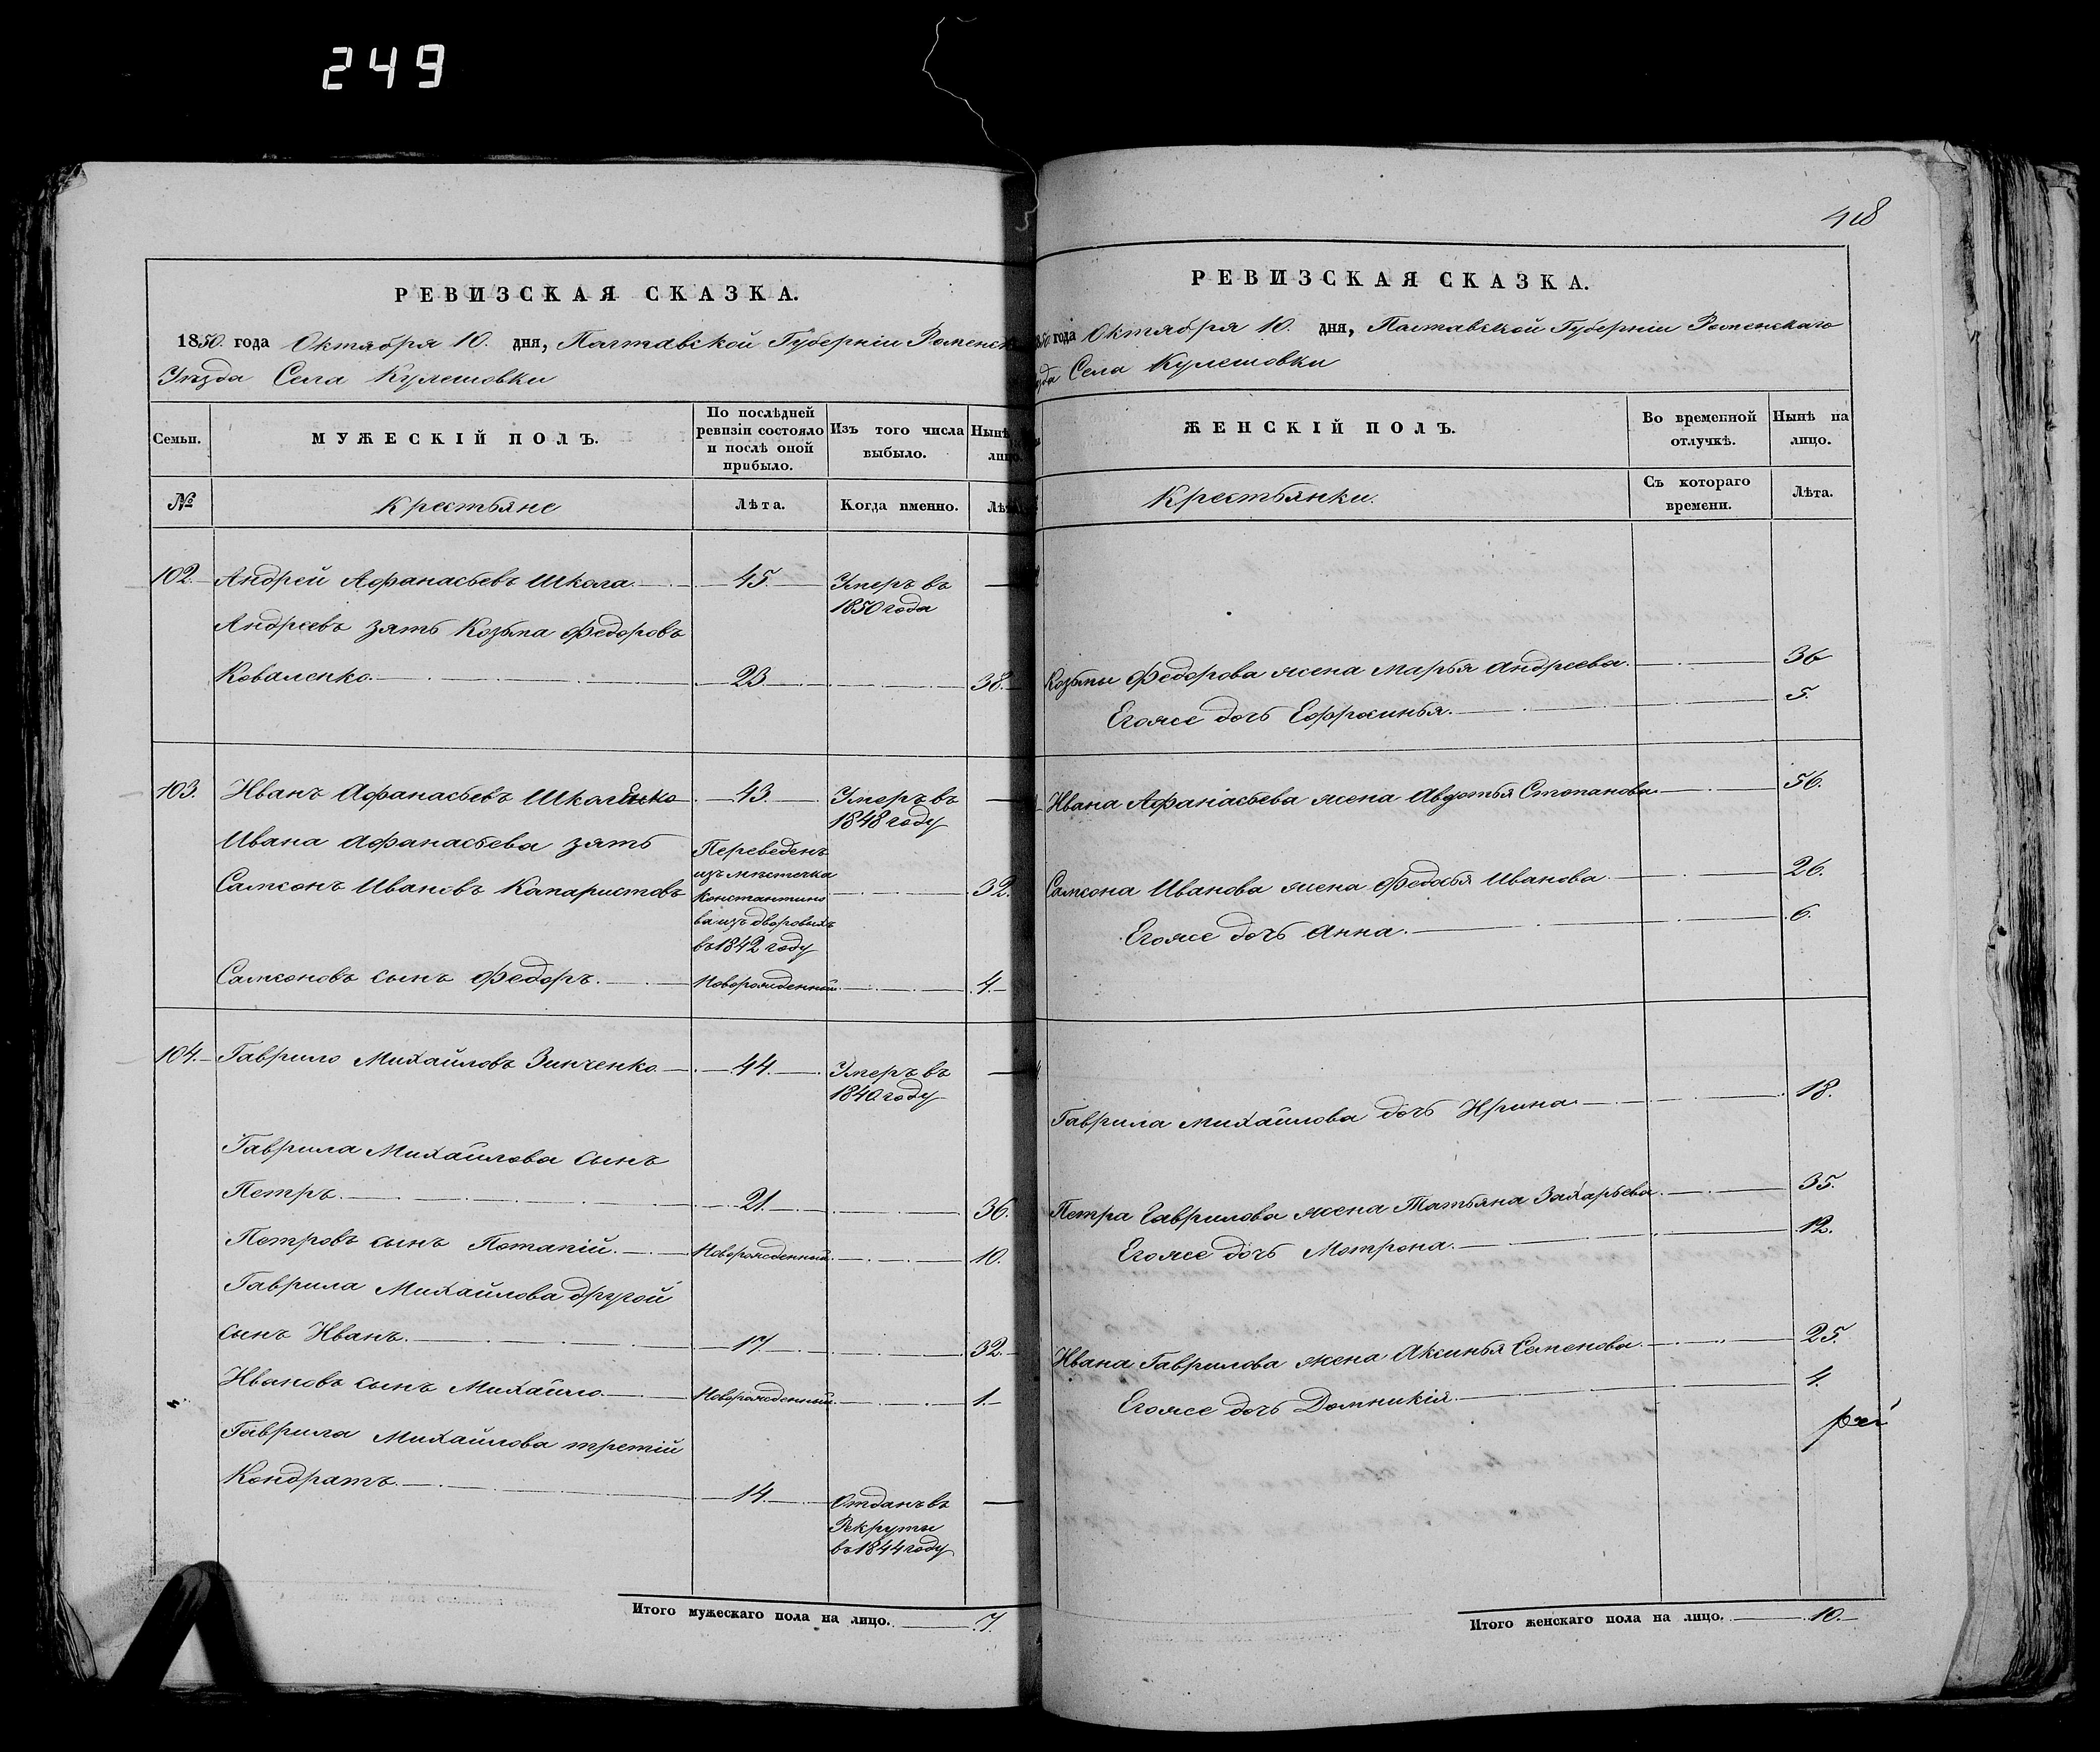 249
РЕВИЗСКАЯ СКАЗКА.
1850. года Октября 10. дня, Полтавской Губерніи Роменск
Уѣзда Села Кулешовки
Семьи.
МУЖЕСКІЙ ПОЛЪ.
По послѣдней
ревизіи состояло
и послѣ оной
прибыло.
Изъ того числа
выбыло.
Нынѣ
лицо.
№
Крестьяне
Лѣта.
Когда именно.
Лѣта
102. Андрей Афанасьевъ Школа. 45. Умеръ въ —
1850 года
Андреевъ зять Козьма Федоровъ
Коваленко. 23 38.
103. Иванъ Афанасьевъ Школенко 43. Умеръ въ —
1848 году
Ивана Афанасьева зять
Самсонъ Ивановъ Капаристовъ 32.
Переведенъ
изъ мѣстечка
Константино
ва изъ дворовыхъ
въ 1842 году
Самсоновъ сынъ Федоръ. Новорожденный 4.
104. Гаврило Михайловъ Зинченко 44. Умеръ въ —
1840 году
Гаврила Михайлова сынъ
Петръ. 21. 36.
Петровъ сынъ Потапій. Новорожденный. 10.
Гаврила Михайлова другой
сынъ Иванъ. 17 32.
Ивановъ сынъ Михайло. Новорожденный. 1.
Гаврила Михайлова третій
Кондратъ. 14. Отданъ въ —
Рекруты
въ 1844 году
Итого мужескаго пола на лицо. 7.
418
РЕВИЗСКАЯ СКАЗКА.
года Октября 10. дня, Полтавской Губерніи Роменскаго
Села Кулешовки
ЖЕНСКІЙ ПОЛЪ.
Во временной
отлучкѣ.
Нынѣ на
лицо.
Крестьянки.
Съ котораго
времени.
Лѣта.
Козьмы Федорова жена Марья Андреева. 36
Егоже дочь Ефросинья. 5.
Ивана Афанасьева жена Авдотья Степанова. 56.
Самсона Иванова жена Федосья Иванова 26.
Егоже дочь Анна. 6.
Гаврила Михайлова дочь Ирина. 18.
Петра Гаврилова жена Татьяна Захарьева. 35.
Егоже дочь Мотрона. 12.
Ивана Гаврилова жена Аксинья Семенова. 25.
Егоже дочь Домникія. 4.
Итого женскаго пола на лицо. 10.